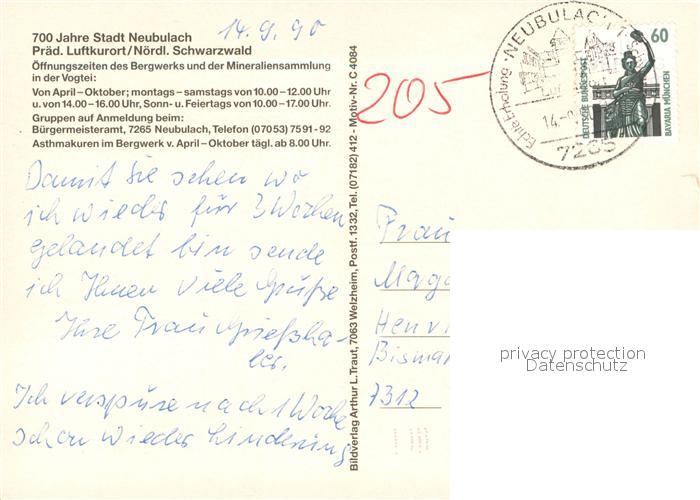 14.9.90
700 Jahre Stadt Neubulach
Präd. Luftkurort/Nördl. Schwarzwald
Öffnungszeiten des Bergwerks und der Mineraliensammlung
in der Vogtei:
Von April – Oktober; montags – samstags von 10.00 – 12.00 Uhr
u. von 14.00 – 16.00 Uhr, Sonn- u. Feiertags von 10.00 – 17.00 Uhr.
Gruppen auf Anmeldung beim:
Bürgermeisteramt, 7265 Neubulach, Telefon (07053) 7591-92
Asthmakuren im Bergwerk v. April – Oktober tägl. ab 8.00 Uhr.
Damit Sie sehen wo
ich wieder für 3 Wochen
gelandet bin sende
ich Ihnen viele Grüße
Ihre Frau Grießha-
ber.
Ich verspüre nach 1 Woche
schon wieder Linderung
Bildverlag Arthur L. Traut, 7063 Welzheim, Postf. 1332, Tel. (07182) 412 - Motiv-Nr. C 4084
205
NEUBULACH 1
Echte Erholung
14.
7265
60
DEUTSCHE BUNDESPOST
BAVARIA MÜNCHEN
Frau
Magd
Henri
Bismar
7312
privacy protection
Datenschutz